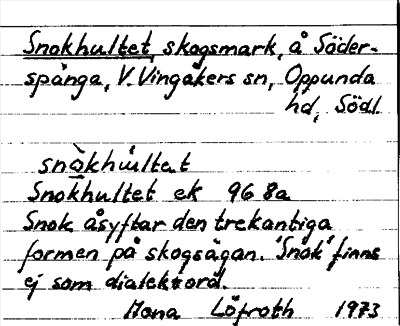 Snokhultet, skogsmark, å Söder-
spånga, V. Vingåkers sn, Oppunda
hd, Södl.
snòkhùltat
Snokhultet ek 968a
Snok åsyftar den trekantiga
formen på skogsägan. 'Snok' finns
ej som dialektord.
Mona Löfroth 1973